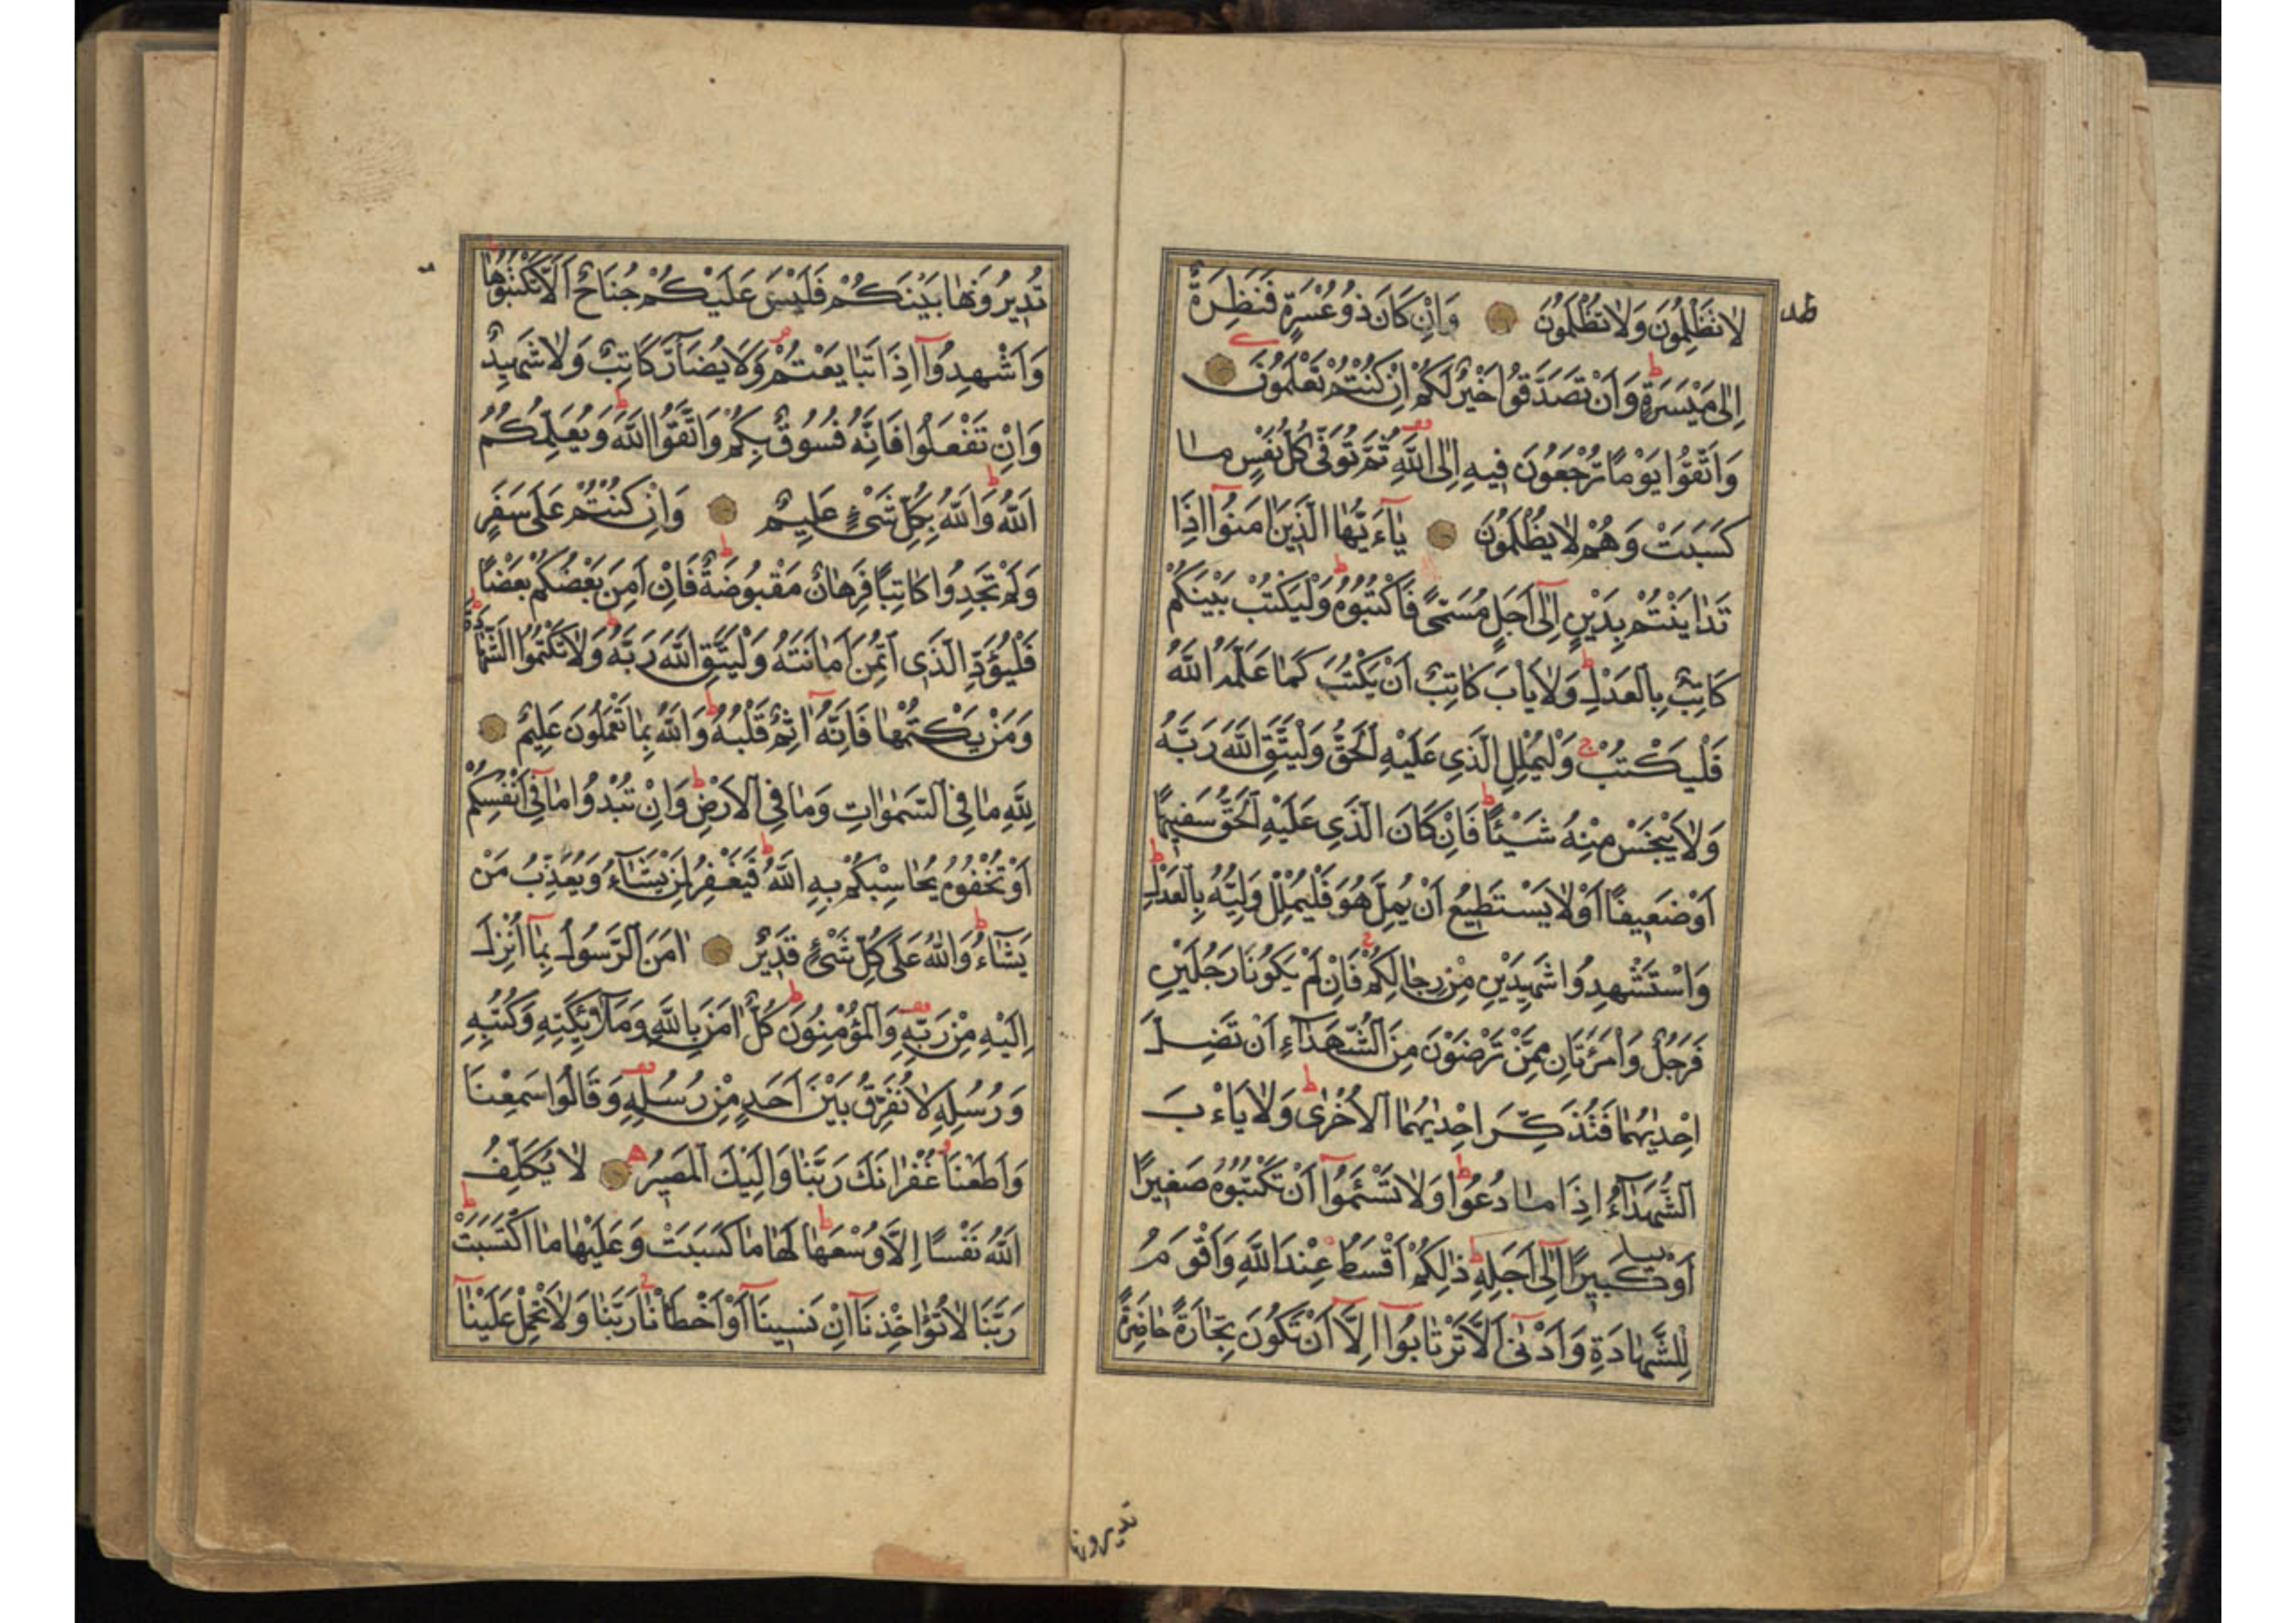 لَا تَظْلِمُونَ وَلَا تُظْلَمُونَ وَاِنْ كَانَ ذُو عُسْرَةٍ فَنَظِرَةٌ
اِلٰى مَيْسَرَةٍ وَاَنْ تَصَدَّقُوا خَيْرٌ لَكُمْ اِنْ كُنْتُمْ تَعْلَمُونَ
وَاتَّقُوا يَوْمًا تُرْجَعُونَ فِيهِ اِلَى اللّٰهِ ثُمَّ تُوَفّٰى كُلُّ نَفْسٍ مَا
كَسَبَتْ وَهُمْ لَا يُظْلَمُونَ يَآءَيُّهَا الَّذِينَ اٰمَنُوٓا اِذَا
تَدَايَنْتُمْ بِدَيْنٍ اِلٰٓى اَجَلٍ مُسَمًّى فَاكْتُبُوهُ وَلْيَكْتُبْ بَيْنَكُمْ
كَاتِبٌ بِالْعَدْلِ وَلَا يَابَ كَاتِبٌ اَنْ يَكْتُبَ كَمَا عَلَّمَهُ اللّٰهُ
فَلْيَكْتُبْ وَلْيُمْلِلِ الَّذِي عَلَيْهِ الْحَقُّ وَلْيَتَّقِ اللّٰهَ رَبَّهُ
وَلَا يَبْخَسْ مِنْهُ شَيْئًا فَاِنْ كَانَ الَّذِي عَلَيْهِ الْحَقُّ سَفِيهًا
اَوْ ضَعِيفًا اَوْ لَا يَسْتَطِيعُ اَنْ يُمِلَّ هُوَ فَلْيُمْلِلْ وَلِيُّهُ بِالْعَدْلِ
وَاسْتَشْهِدُوا شَهِيدَيْنِ مِنْ رِجَالِكُمْ فَاِنْ لَمْ يَكُونَا رَجُلَيْنِ
فَرَجُلٌ وَامْرَئَتَانِ مِمَّنْ تَرْضَوْنَ مِنَ الشُّهَدَآءِ اَنْ تَضِلَّ
اِحْدٰيهُمَا فَتُذَكِّرَ اِحْدٰيهُمَا الْاُخْرٰى وَلَا يَاءْبَ
الشُّهَدَآءُ اِذَا مَا دُعُوا وَلَا تَسْئَمُوٓا اَنْ تَكْتُبُوهُ صَغِيرًا
اَوْ كَبِيرًا اِلٰٓى اَجَلِهِ ذٰلِكُمْ اَقْسَطُ عِنْدَ اللّٰهِ وَاَقْوَمُ
لِلشَّهَادَةِ وَاَدْنٰٓى اَلَّا تَرْتَابُوٓا اِلَّآ اَنْ تَكُونَ تِجَارَةً حَاضِرَةً
تديرونها
تُدِيرُونَهَا بَيْنَكُمْ فَلَيْسَ عَلَيْكُمْ جُنَاحٌ اَلَّا تَكْتُبُوهَا
وَاَشْهِدُوٓا اِذَا تَبَايَعْتُمْ وَلَا يُضَآرَّ كَاتِبٌ وَلَا شَهِيدٌ
وَاِنْ تَفْعَلُوا فَاِنَّهُ فُسُوقٌ بِكُمْ وَاتَّقُوا اللّٰهَ وَيُعَلِّمُكُمُ
اللّٰهُ وَاللّٰهُ بِكُلِّ شَيْءٍ عَلِيمٌ وَاِنْ كُنْتُمْ عَلٰى سَفَرٍ
وَلَمْ تَجِدُوا كَاتِبًا فَرِهَانٌ مَقْبُوضَةٌ فَاِنْ اَمِنَ بَعْضُكُمْ بَعْضًا
فَلْيُؤَدِّ الَّذِي اؤْتُمِنَ اَمَانَتَهُ وَلْيَتَّقِ اللّٰهَ رَبَّهُ وَلَا تَكْتُمُوا الشَّهَادَةَ
وَمَنْ يَكْتُمْهَا فَاِنَّهُٓ اٰثِمٌ قَلْبُهُ وَاللّٰهُ بِمَا تَعْمَلُونَ عَلِيمٌ
لِلّٰهِ مَا فِي السَّمٰوَاتِ وَمَا فِي الْاَرْضِ وَاِنْ تُبْدُوا مَا فِٓي اَنْفُسِكُمْ
اَوْ تُخْفُوهُ يُحَاسِبْكُمْ بِهِ اللّٰهُ فَيَغْفِرُ لِمَنْ يَشَآءُ وَيُعَذِّبُ مَنْ
يَشَآءُ وَاللّٰهُ عَلٰى كُلِّ شَيْءٍ قَدِيرٌ اٰمَنَ الرَّسُولُ بِمَآ اُنْزِلَ
اِلَيْهِ مِنْ رَبِّهِ وَالْمُؤْمِنُونَ كُلٌّ اٰمَنَ بِاللّٰهِ وَمَلٰٓئِكَتِهِ وَكُتُبِهِ
وَرُسُلِهِ لَا نُفَرِّقُ بَيْنَ اَحَدٍ مِنْ رُسُلِهِ وَقَالُوا سَمِعْنَا
وَاَطَعْنَا غُفْرَانَكَ رَبَّنَا وَاِلَيْكَ الْمَصِيرُ لَا يُكَلِّفُ
اللّٰهُ نَفْسًا اِلَّا وُسْعَهَا لَهَا مَا كَسَبَتْ وَعَلَيْهَا مَا اكْتَسَبَتْ
رَبَّنَا لَا تُؤَاخِذْنَآ اِنْ نَسِينَآ اَوْ اَخْطَاْنَا رَبَّنَا وَلَا تَحْمِلْ عَلَيْنَآ